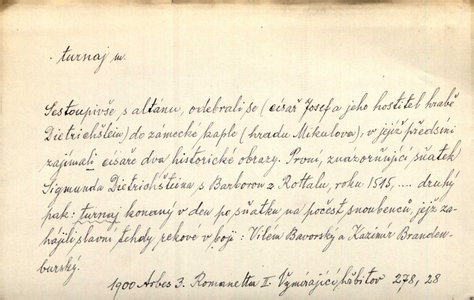 turnaj m.
Sestoupivše s altánu, odebrali se (císař Josef a jeho hostitel hrabě
Dietrichštein) do zámecké kaple (hradu Mikulova), v jejíž předsíni
zajímali císaře dva historické obrazy. První, znázorňující sňatek
Sigmunda Dietrichšteina s Barborou z Rottalu, roku 1515, .... druhý
pak: turnaj konaný v den po sňatku na počest snoubenců, jejž za-
hájili slavní tehdy rekové v boji: Vilém Bavorský a Kazimír Branden-
burský.
1900 Arbes 3. Romanetta II. Vymírající hřbitov 278, 28